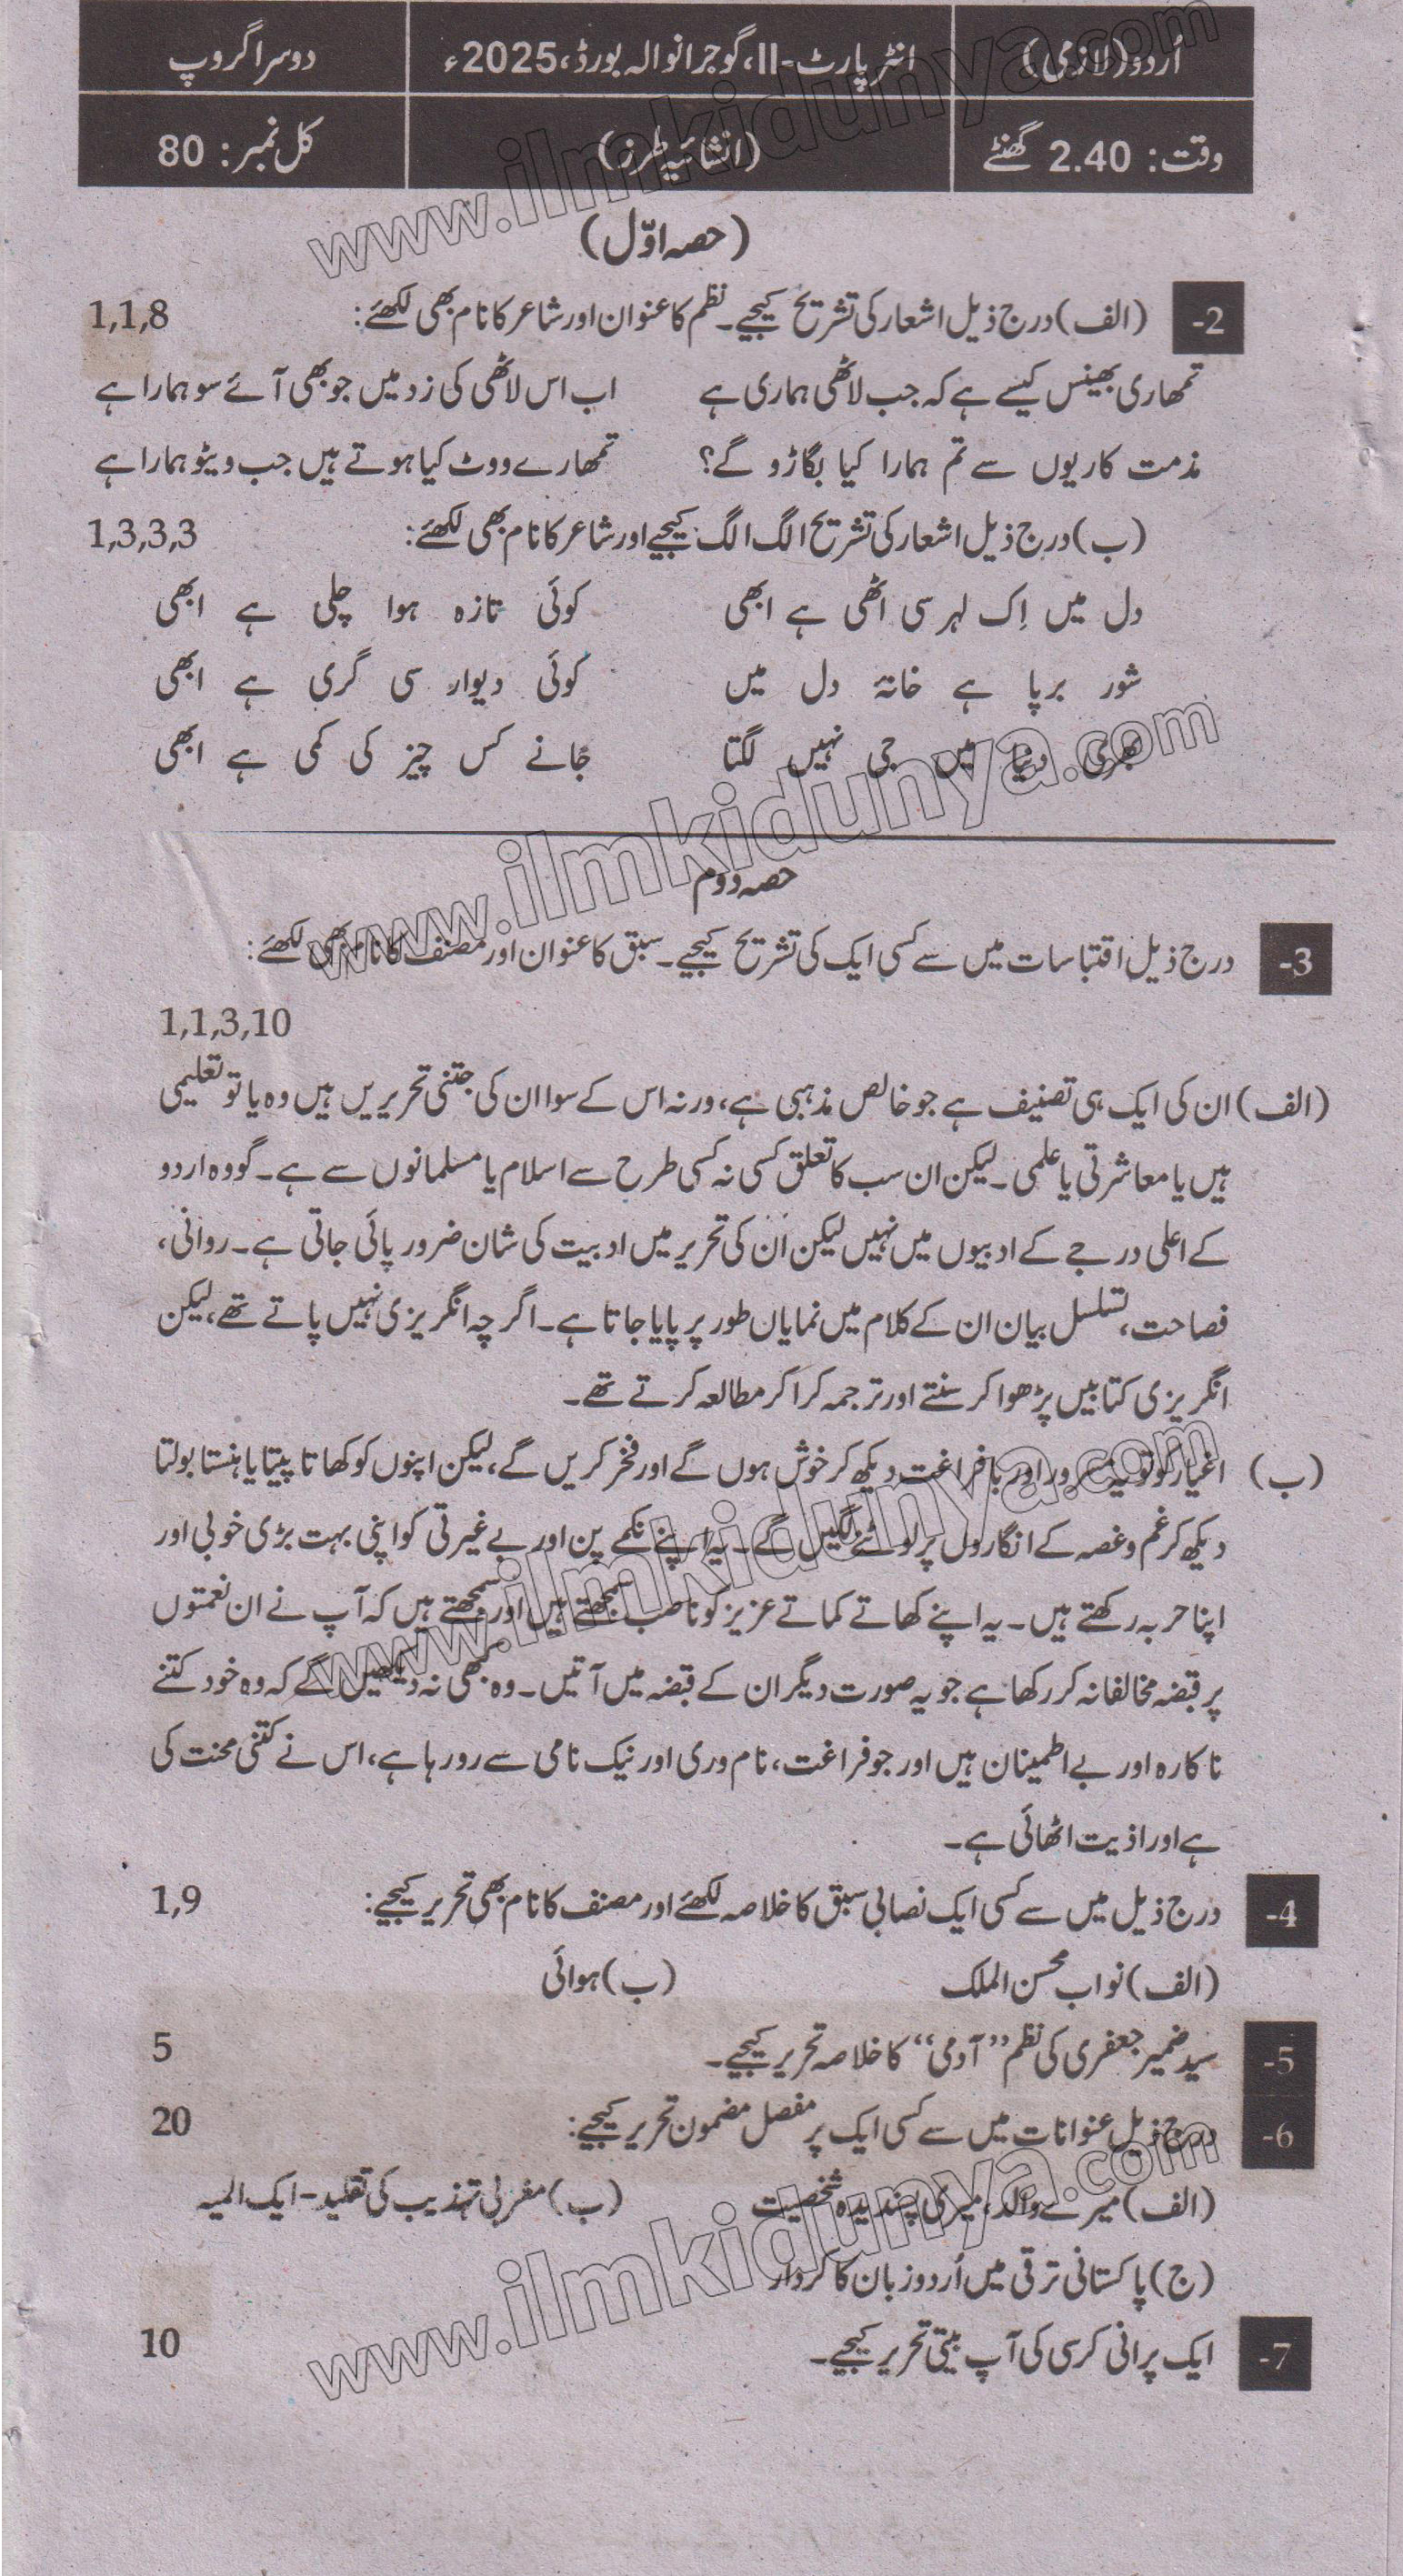 اُردو (لازمی) انٹر پارٹ-II، گوجرانوالہ بورڈ، 2025ء دوسرا گروپ
وقت: 2.40 گھنٹے (انشائیہ طرز) کل نمبر: 80
(حصہ اوّل)
2- (الف) درج ذیل اشعار کی تشریح کیجیے۔ نظم کا عنوان اور شاعر کا نام بھی لکھئے: 1,1,8
تمھاری بھینس کیسے ہے کہ جب لاٹھی ہماری ہے اب اس لاٹھی کی زد میں جو بھی آئے سو ہمارا ہے
مذمت کاریوں سے تم ہمارا کیا بگاڑو گے؟ تمھارے ووٹ کیا ہوتے ہیں جب ویٹو ہمارا ہے
(ب) درج ذیل اشعار کی تشریح الگ الگ کیجیے اور شاعر کا نام بھی لکھئے: 1,3,3,3
دل میں اِک لہر سی اٹھی ہے ابھی کوئی تازہ ہوا چلی ہے ابھی
شور برپا ہے خانۂ دل میں کوئی دیوار سی گری ہے ابھی
بھری دنیا میں جی نہیں لگتا جانے کس چیز کی کمی ہے ابھی
حصہ دوم
3- درج ذیل اقتباسات میں سے کسی ایک کی تشریح کیجیے۔ سبق کا عنوان اور مصنف کا نام بھی لکھئے:
1,1,3,10
(الف) ان کی ایک ہی تصنیف ہے جو خالص مذہبی ہے، ورنہ اس کے سوا ان کی جتنی تحریریں ہیں وہ یا تو تعلیمی
ہیں یا معاشرتی یا علمی۔ لیکن ان سب کا تعلق کسی نہ کسی طرح سے اسلام یا مسلمانوں سے ہے۔ گو وہ اردو
کے اعلی درجے کے ادیبوں میں نہیں لیکن ان کی تحریر میں ادبیت کی شان ضرور پائی جاتی ہے۔ روانی،
فصاحت، تسلسل بیان ان کے کلام میں نمایاں طور پر پایا جاتا ہے۔ اگرچہ انگریزی نہیں پاتے تھے، لیکن
انگریزی کتابیں پڑھوا کر سنتے اور ترجمہ کرا کر مطالعہ کرتے تھے۔
(ب) اغیار کو تو یہ مسرور اور بافراغت دیکھ کر خوش ہوں گے اور فخر کریں گے، لیکن اپنوں کو کھاتا پیتا یا ہنستا بولتا
دیکھ کر غم و غصہ کے انگاروں پر لوٹنے لگیں گے۔ یہ اپنے نکمے پن اور بے غیرتی کو اپنی بہت بڑی خوبی اور
اپنا حربہ رکھتے ہیں۔ یہ اپنے کھاتے کماتے عزیز کو غاصب سمجھتے ہیں اور سمجھتے ہیں کہ آپ نے ان نعمتوں
پر قبضہ مخالفانہ کر رکھا ہے جو بہ صورت دیگر ان کے قبضہ میں آتیں۔ وہ کبھی نہ دیکھیں گے کہ وہ خود کتنے
ناکارہ اور بے اطمینان ہیں اور جو فراغت، نام وری اور نیک نامی سے رو رہا ہے، اس نے کتنی محنت کی
ہے اور اذیت اٹھائی ہے۔
4- درج ذیل میں سے کسی ایک نصابی سبق کا خلاصہ لکھئے اور مصنف کا نام بھی تحریر کیجیے: 1,9
(الف) نواب محسن الملک (ب) ہوائی
5- سید ضمیر جعفری کی نظم ”آدمی“ کا خلاصہ تحریر کیجیے۔ 5
6- درج ذیل عنوانات میں سے کسی ایک پر مفصل مضمون تحریر کیجیے: 20
(الف) میرے والد، میری پسندیدہ شخصیت (ب) مغربی تہذیب کی تقلید - ایک المیہ
(ج) پاکستانی ترقی میں اُردو زبان کا کردار
7- ایک پرانی کرسی کی آپ بیتی تحریر کیجیے۔ 10
www.ilmkidunya.com
www.ilmkidunya.com
www.ilmkidunya.com
www.ilmkidunya.com